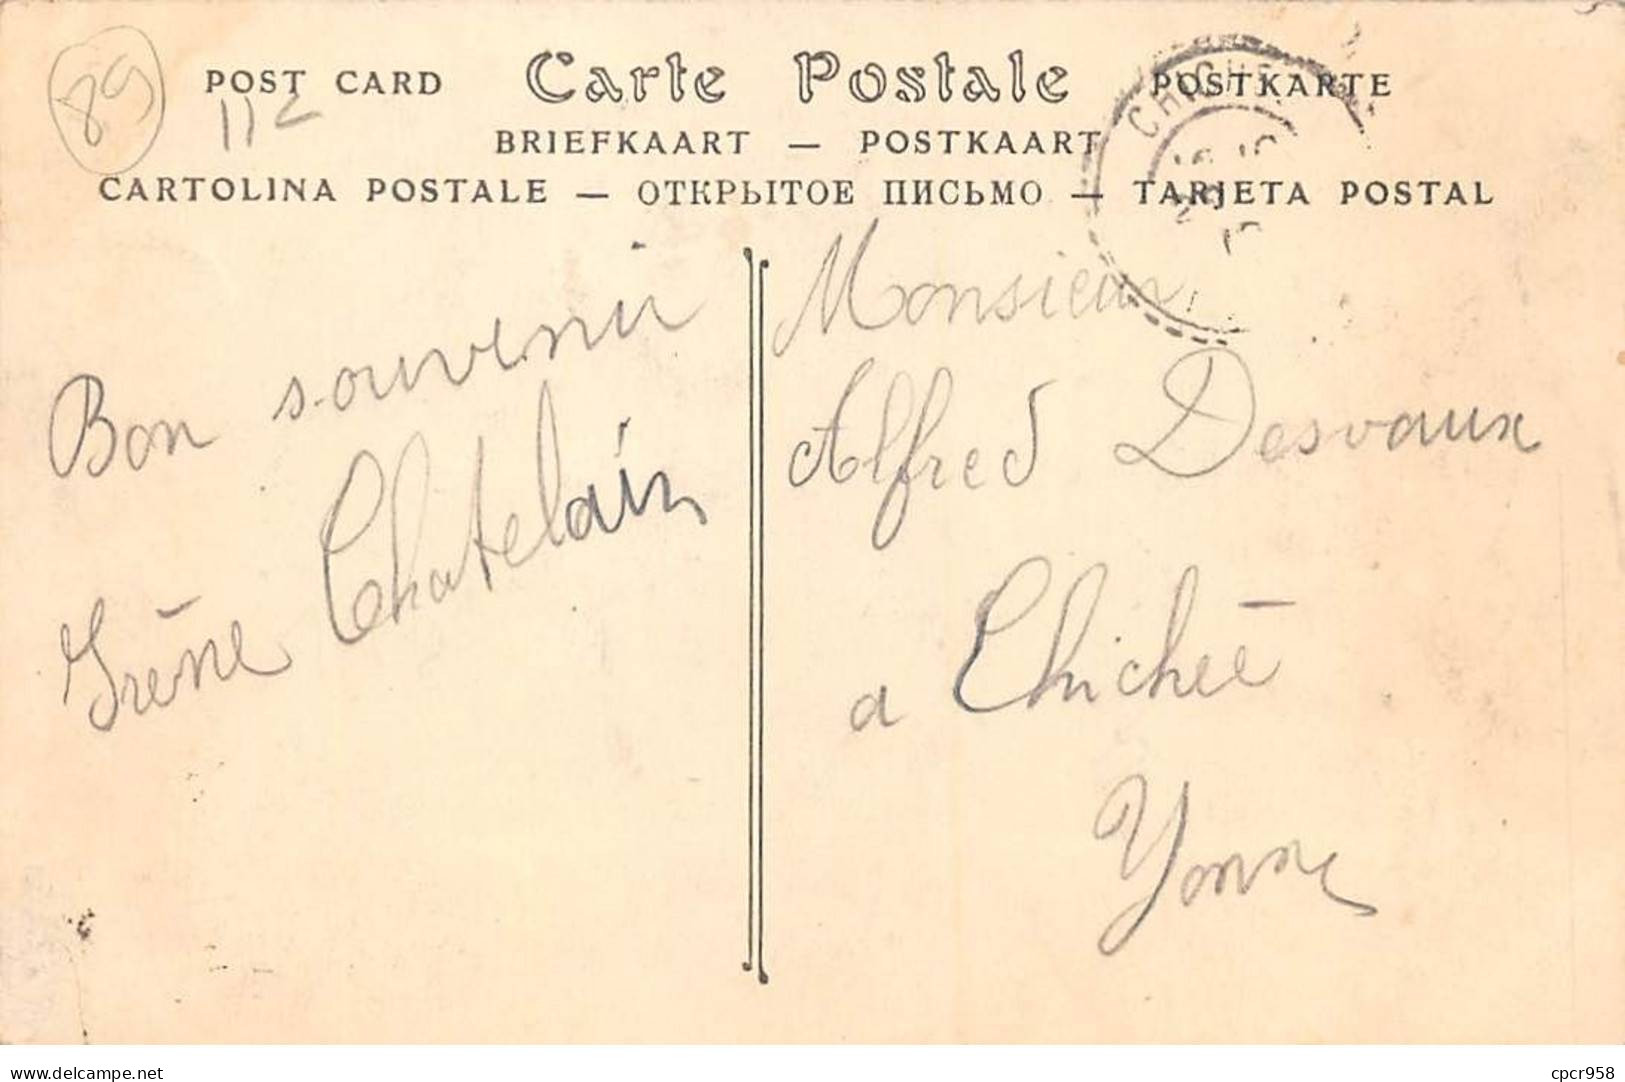 89
POST CARD Carte Postale POSTKARTE
112
BRIEFKAART — POSTKAART
CARTOLINA POSTALE — ОТКРЫТОЕ ПИСЬМО — TARJETA POSTAL
Bon souvenir
Irène Chatelain
Monsieur
Alfred Desvaux
a Chichée
Yonne
www.delcampe.net
cpcr958